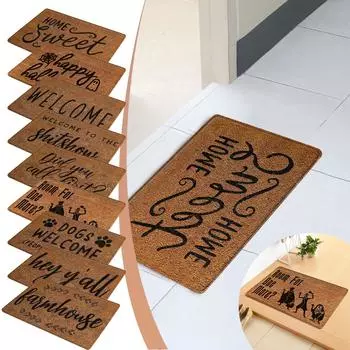 HOME
Sweet
happy
WELCOME
WELCOME TO THE
shitshow
Did you
call
Room For
One More?
DOGS
WELCOME
hey y'all
farmhouse
HOME
Sweet
HOME
Room For
One More?